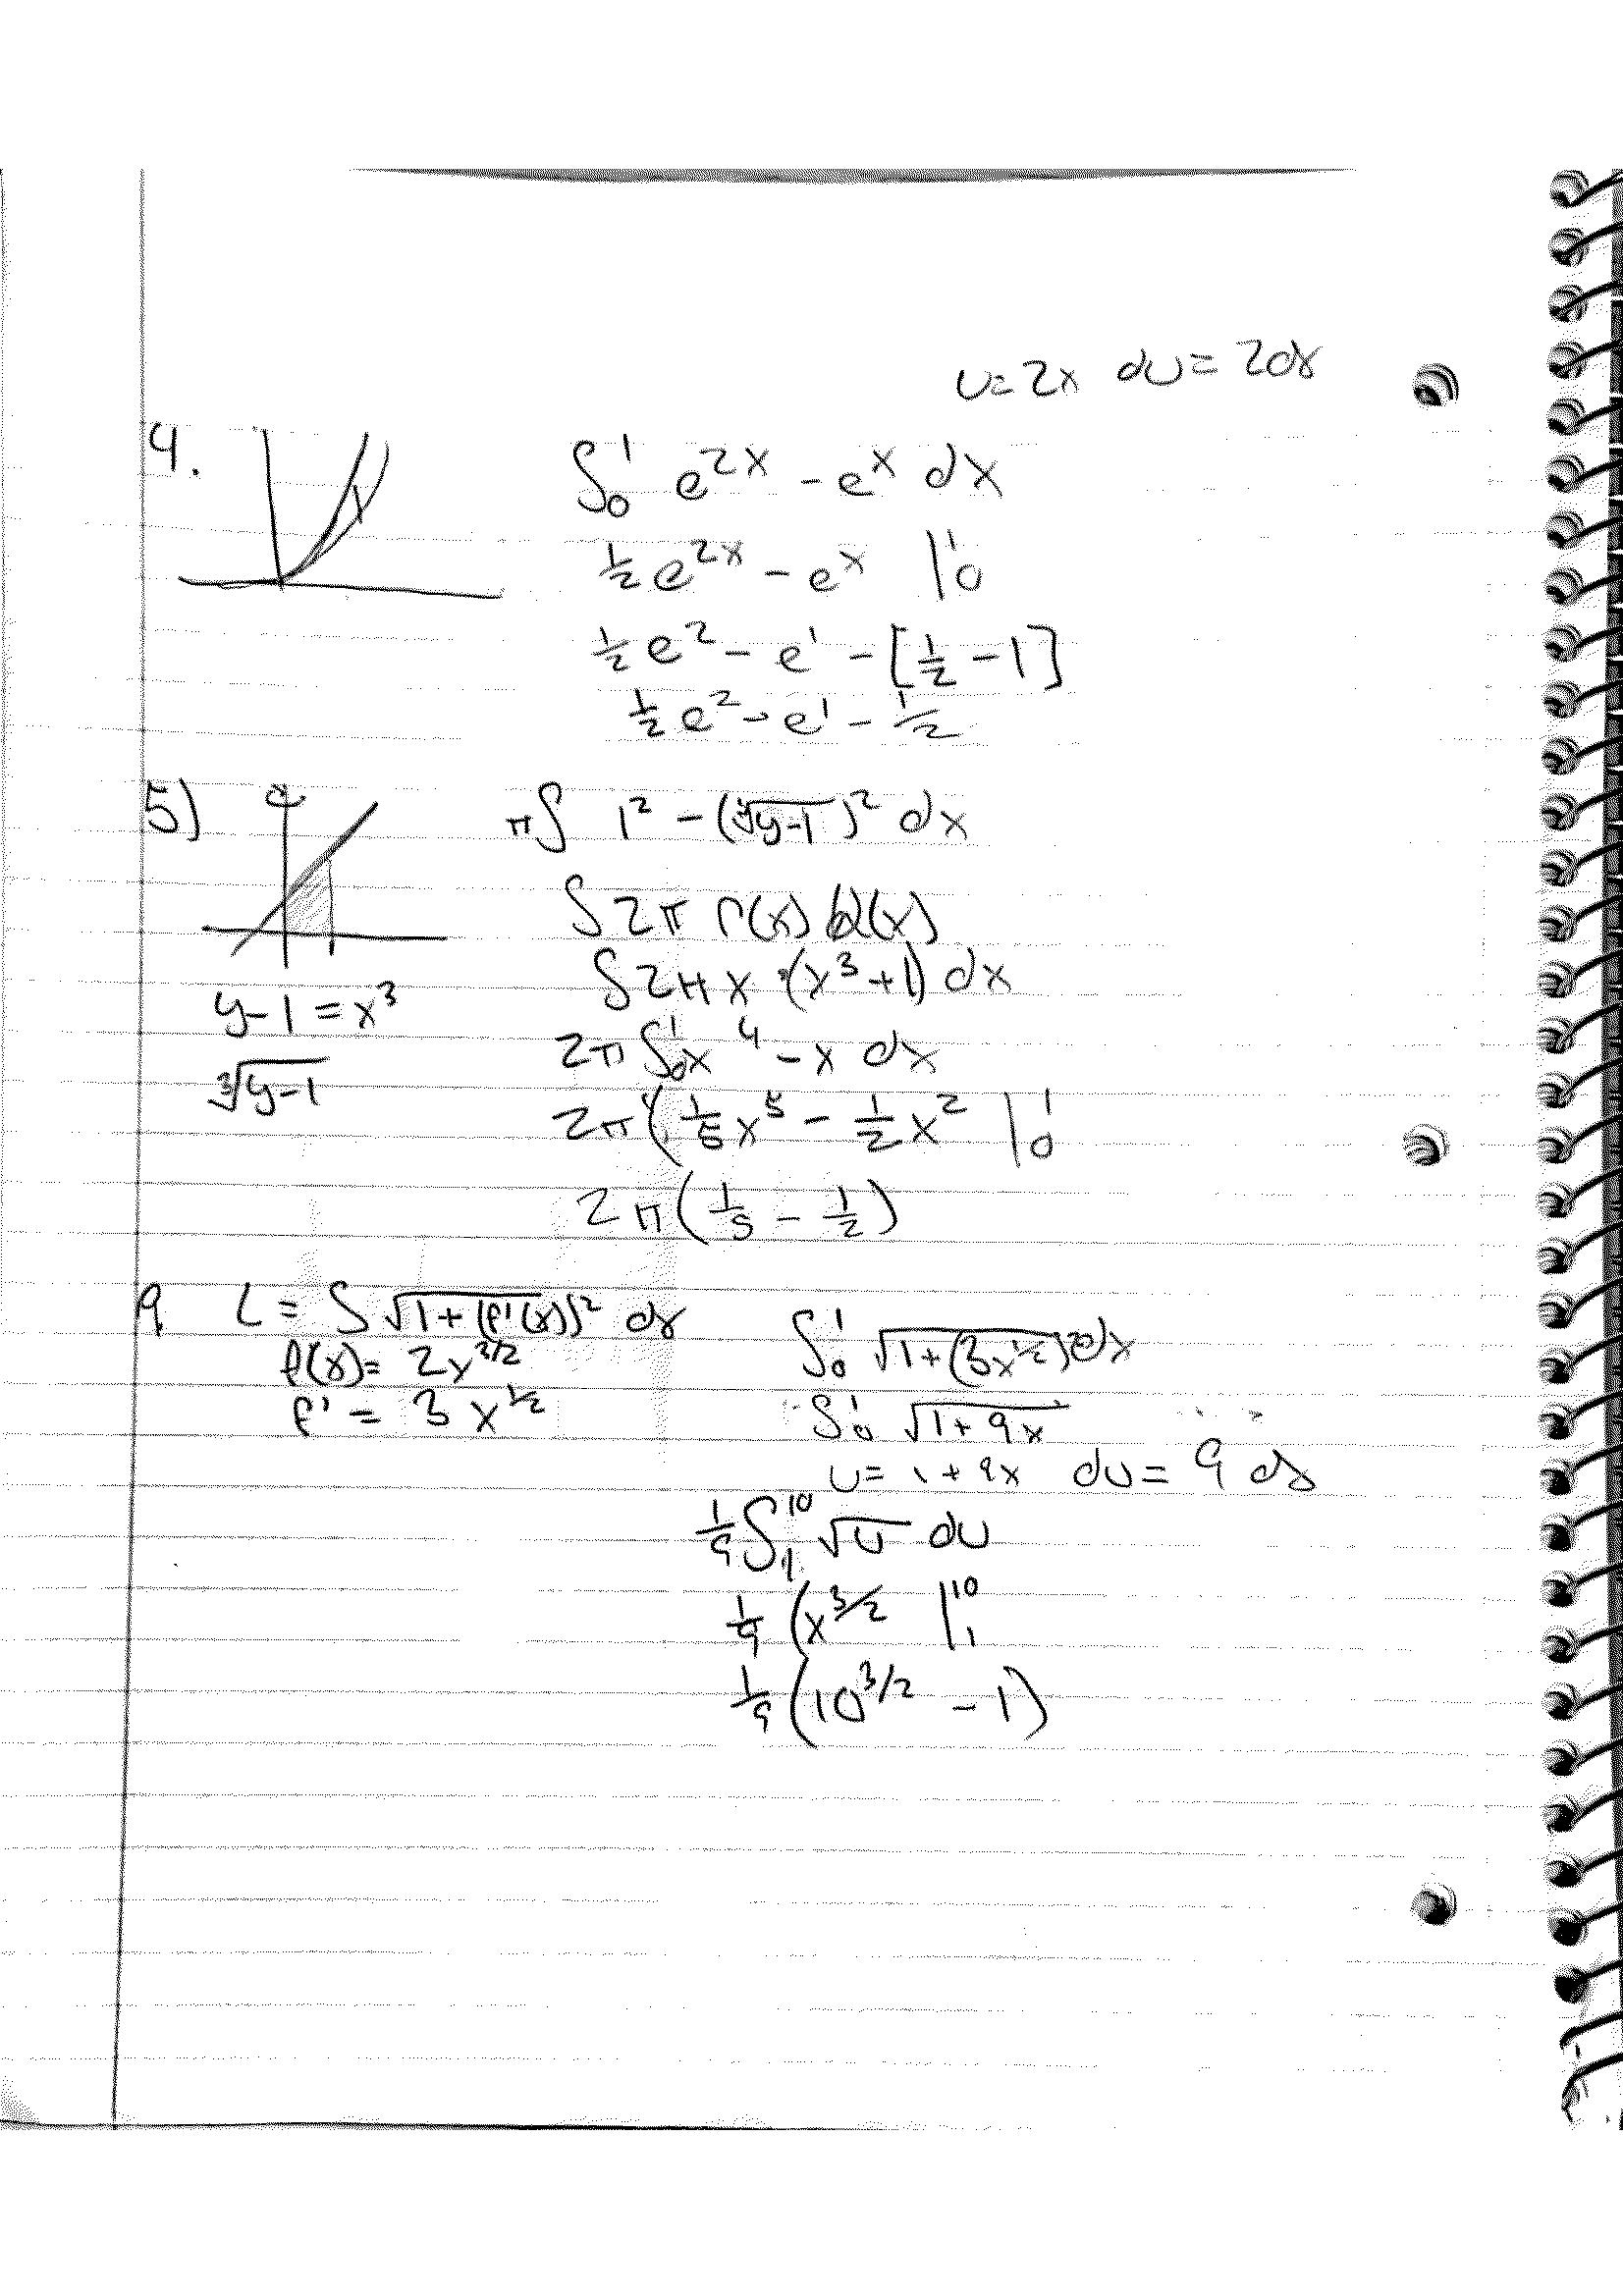 u=2x du=2dx
4.
∫₀¹ e^{2x} - e^x dx
½ e^{2x} - e^x |₀¹
½ e² - e¹ - [½ - 1]
½ e² - e¹ - ½
5)
π∫ 1² - (∛(y-1))² dx
∫ 2π r(x) (x)
∫ 2π x · (x³+1) dx
y-1 = x³
2π ∫₀¹ x⁴ - x dx
∛(y-1)
2π (⅕ x⁵ - ½ x² |₀¹
2π (⅕ - ½)
9 L = ∫ √(1+(f'(x))² dx
∫₀¹ √(1+(3x^{1/2})² dx
f(x) = 2x^{3/2}
f' = 3x^{1/2}
∫₀¹ √(1+9x)
u = 1+9x du = 9 dx
1/9 ∫₁¹⁰ √u du
1/9 (x^{3/2} |₁¹⁰
1/9 (10^{3/2} - 1)